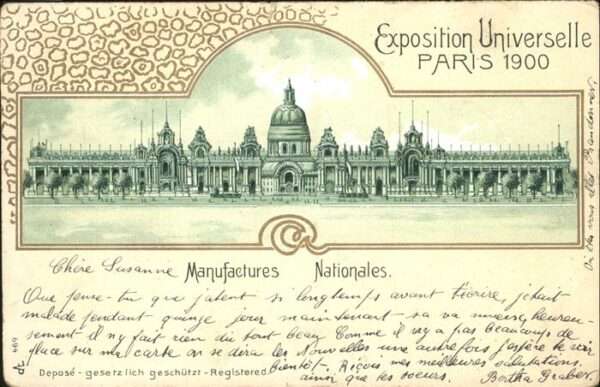 Exposition Universelle
PARIS 1900
Chère Susanne
Manufactures Nationales.
Que pense-tu que j'atent si longtemps avant t'écrire, j'etait
malade pendant quinze jour maintenant sa va mieux, heureu-
sement il n'y fait rien du tout beau. Comme il n'y a pas beaucoup de
place sur ma carte on se dira les Nouvelles une autre fois j'espère te voir
bientôt. Reçois mes meilleures salutations,
ainsi que tes soeurs. Bertha Graber.
Deposé - gesetzlich geschützt - Registered
469